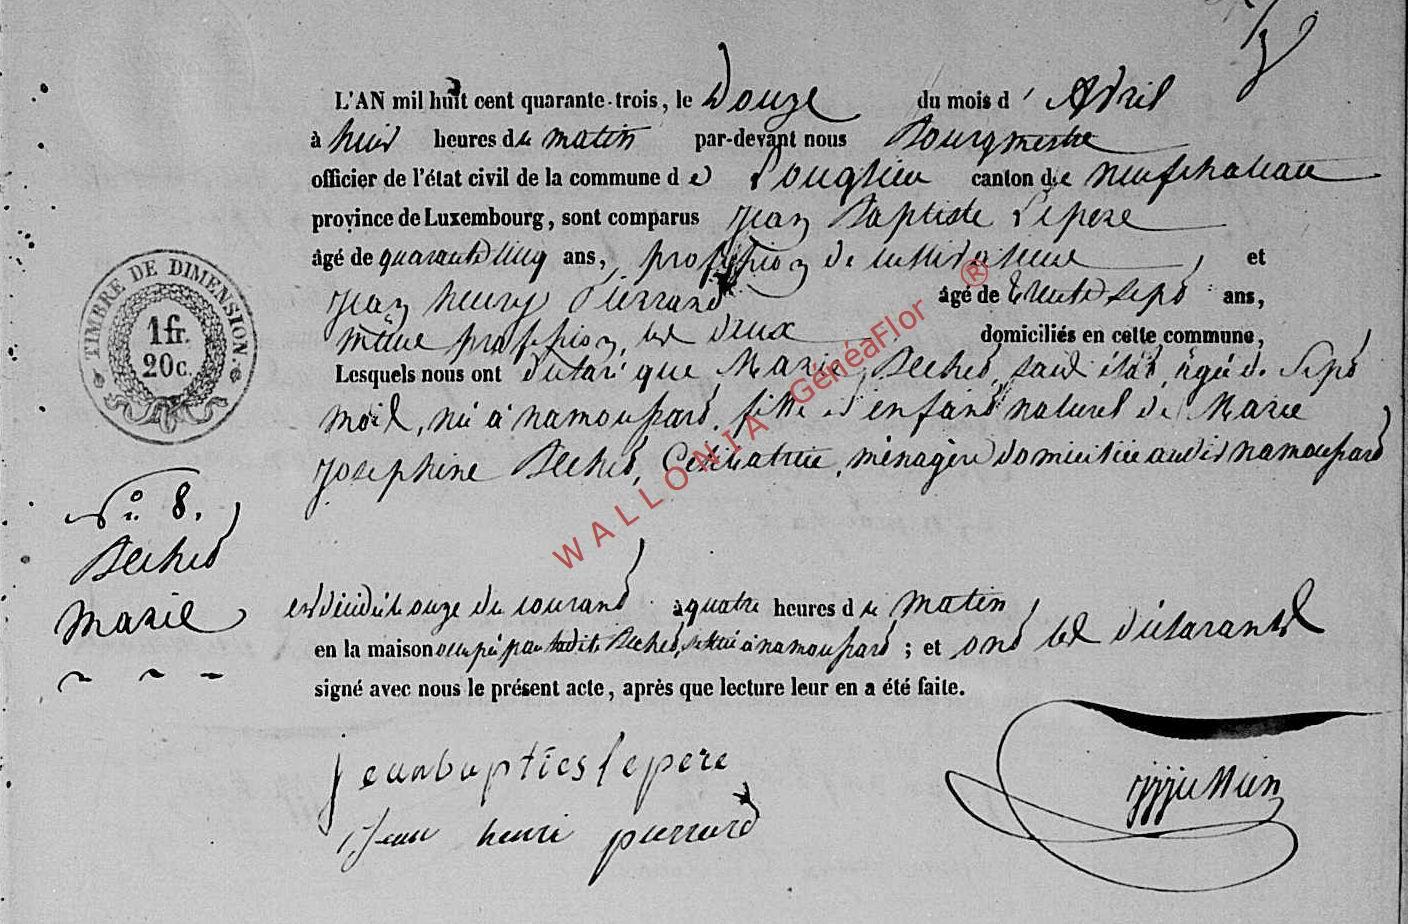 L'AN mil huit cent quarante-trois, le Douze du mois d' Avril
à huit heures du matin par-devant nous Bourgmestre
officier de l'état civil de la commune de Longlier canton de neufchateau
province de Luxembourg, sont comparus Jean Baptiste Lepere
âgé de quarante cinq ans, profession de cultivateur, et
Jean henry Pierrard âgé de trente sept ans,
même profession, les deux domiciliés en cette commune,
Lesquels nous ont déclaré que Marie Bechet, sans état, âgée de Sept
mois, née à namoussart, fille et enfant naturel de Marie
Josephine Bechet, Celibataire, ménagère domiciliée audit namoussart
N° 8.
Bechet
Marie
est décédée le onze du courant à quatre heures du matin
en la maison occupée par ladite Bechet, située à namoussart; et ont les déclarants
signé avec nous le présent acte, après que lecture leur en a été faite.
jeanbapties lepere
Jean henri pierrard
TIMBRE DE DIMENSION.
1 fr.
20 c.
WALLONIA GénéaFlor ®